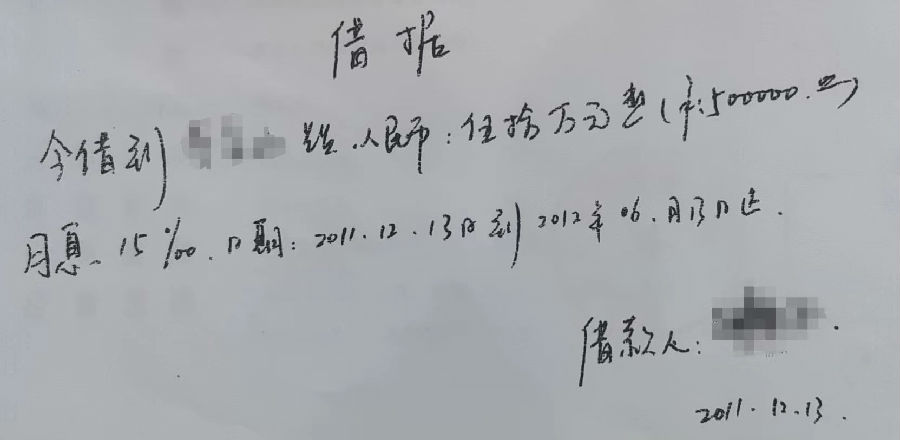 借据
今借到 人民币:伍拾万元整(500000.00)
月息.15‰.日期:2011.12.13日到2012年06.月13日止.
借款人:
2011.12.13.